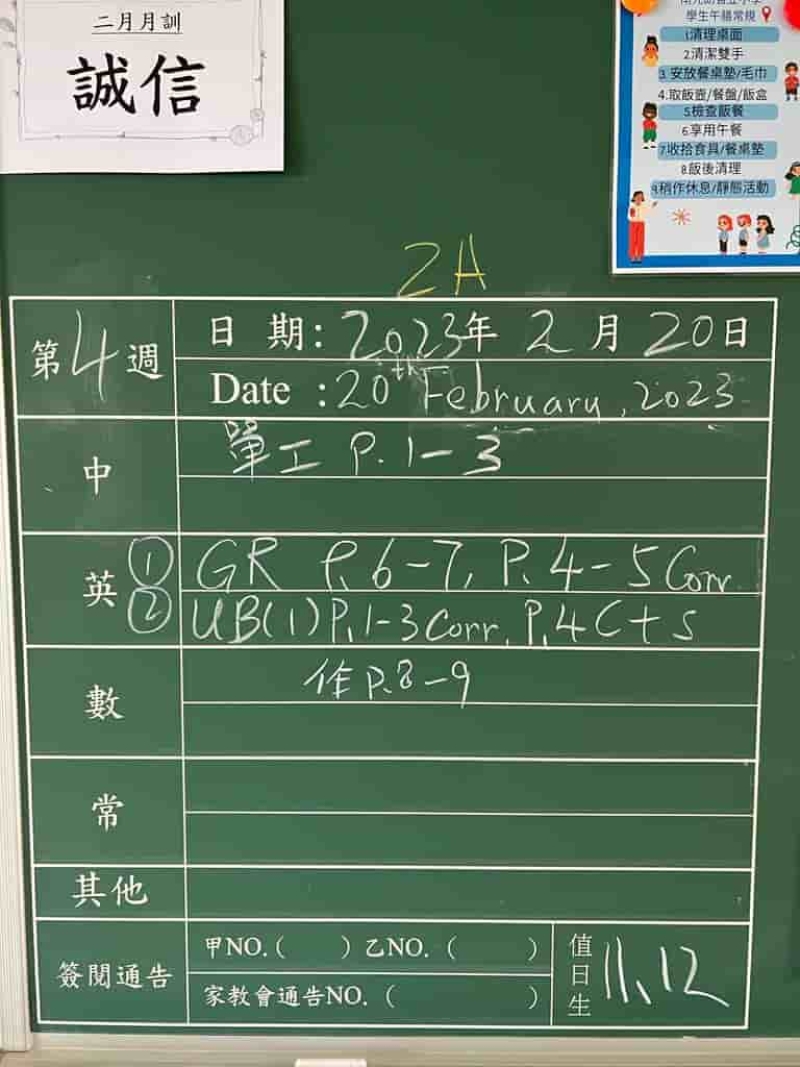 二月月訓
誠信
學生午膳常規
1清理桌面
2清潔雙手
3.安放餐桌墊/毛巾
4.取飯壺/餐盤/飯盒
5檢查飯餐
6.享用午餐
7收拾食具/餐桌墊
8飯後清理
9稍作休息/靜態活動
2A
第4週
日 期: 2023年 2月 20日
Date : 20th February, 2023
中
單工 P. 1-3
英
① GR P. 6-7, P. 4-5 Corr.
② UB(1) P. 1-3 Corr, P. 4 C+S
數
作 P. 8-9
常
其他
簽閱通告
甲NO. ( ) 乙NO. ( )
家教會通告NO. ( )
值日生
11、12